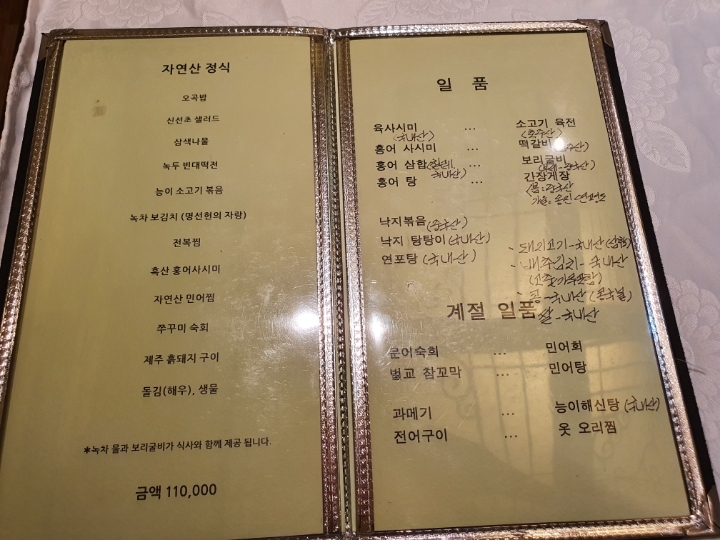 자연산 정식
오곡밥
신선초 샐러드
삼색나물
녹두 빈대떡전
능이 소고기 볶음
녹차 보김치 (명선헌의 자랑)
전복찜
흑산 홍어사시미
자연산 민어찜
쭈꾸미 숙회
제주 흙돼지 구이
돌김(해우), 생물
*녹차 물과 보리굴비가 식사와 함께 제공 됩니다.
금액 110,000
일 품
육사시미 ... 소고기 육전
(국내산) (호주산)
홍어 사시미 떡갈비
홍어 삼합 ... 보리굴비
국내산)
홍어 탕 ... 간장게장
낙지볶음 (중국산)
낙지 탕탕이 (국내산)
연포탕 (국내산)
- 돼지고기-국내산
- 배추김치 - 국내산
- 콩-국내산
쌀-국내산
계절 일품
문어숙회 ... 민어회
벌교 참꼬막 ... 민어탕
과메기 ... 능이해신탕 (국내산)
전어구이 ... 옷 오리찜